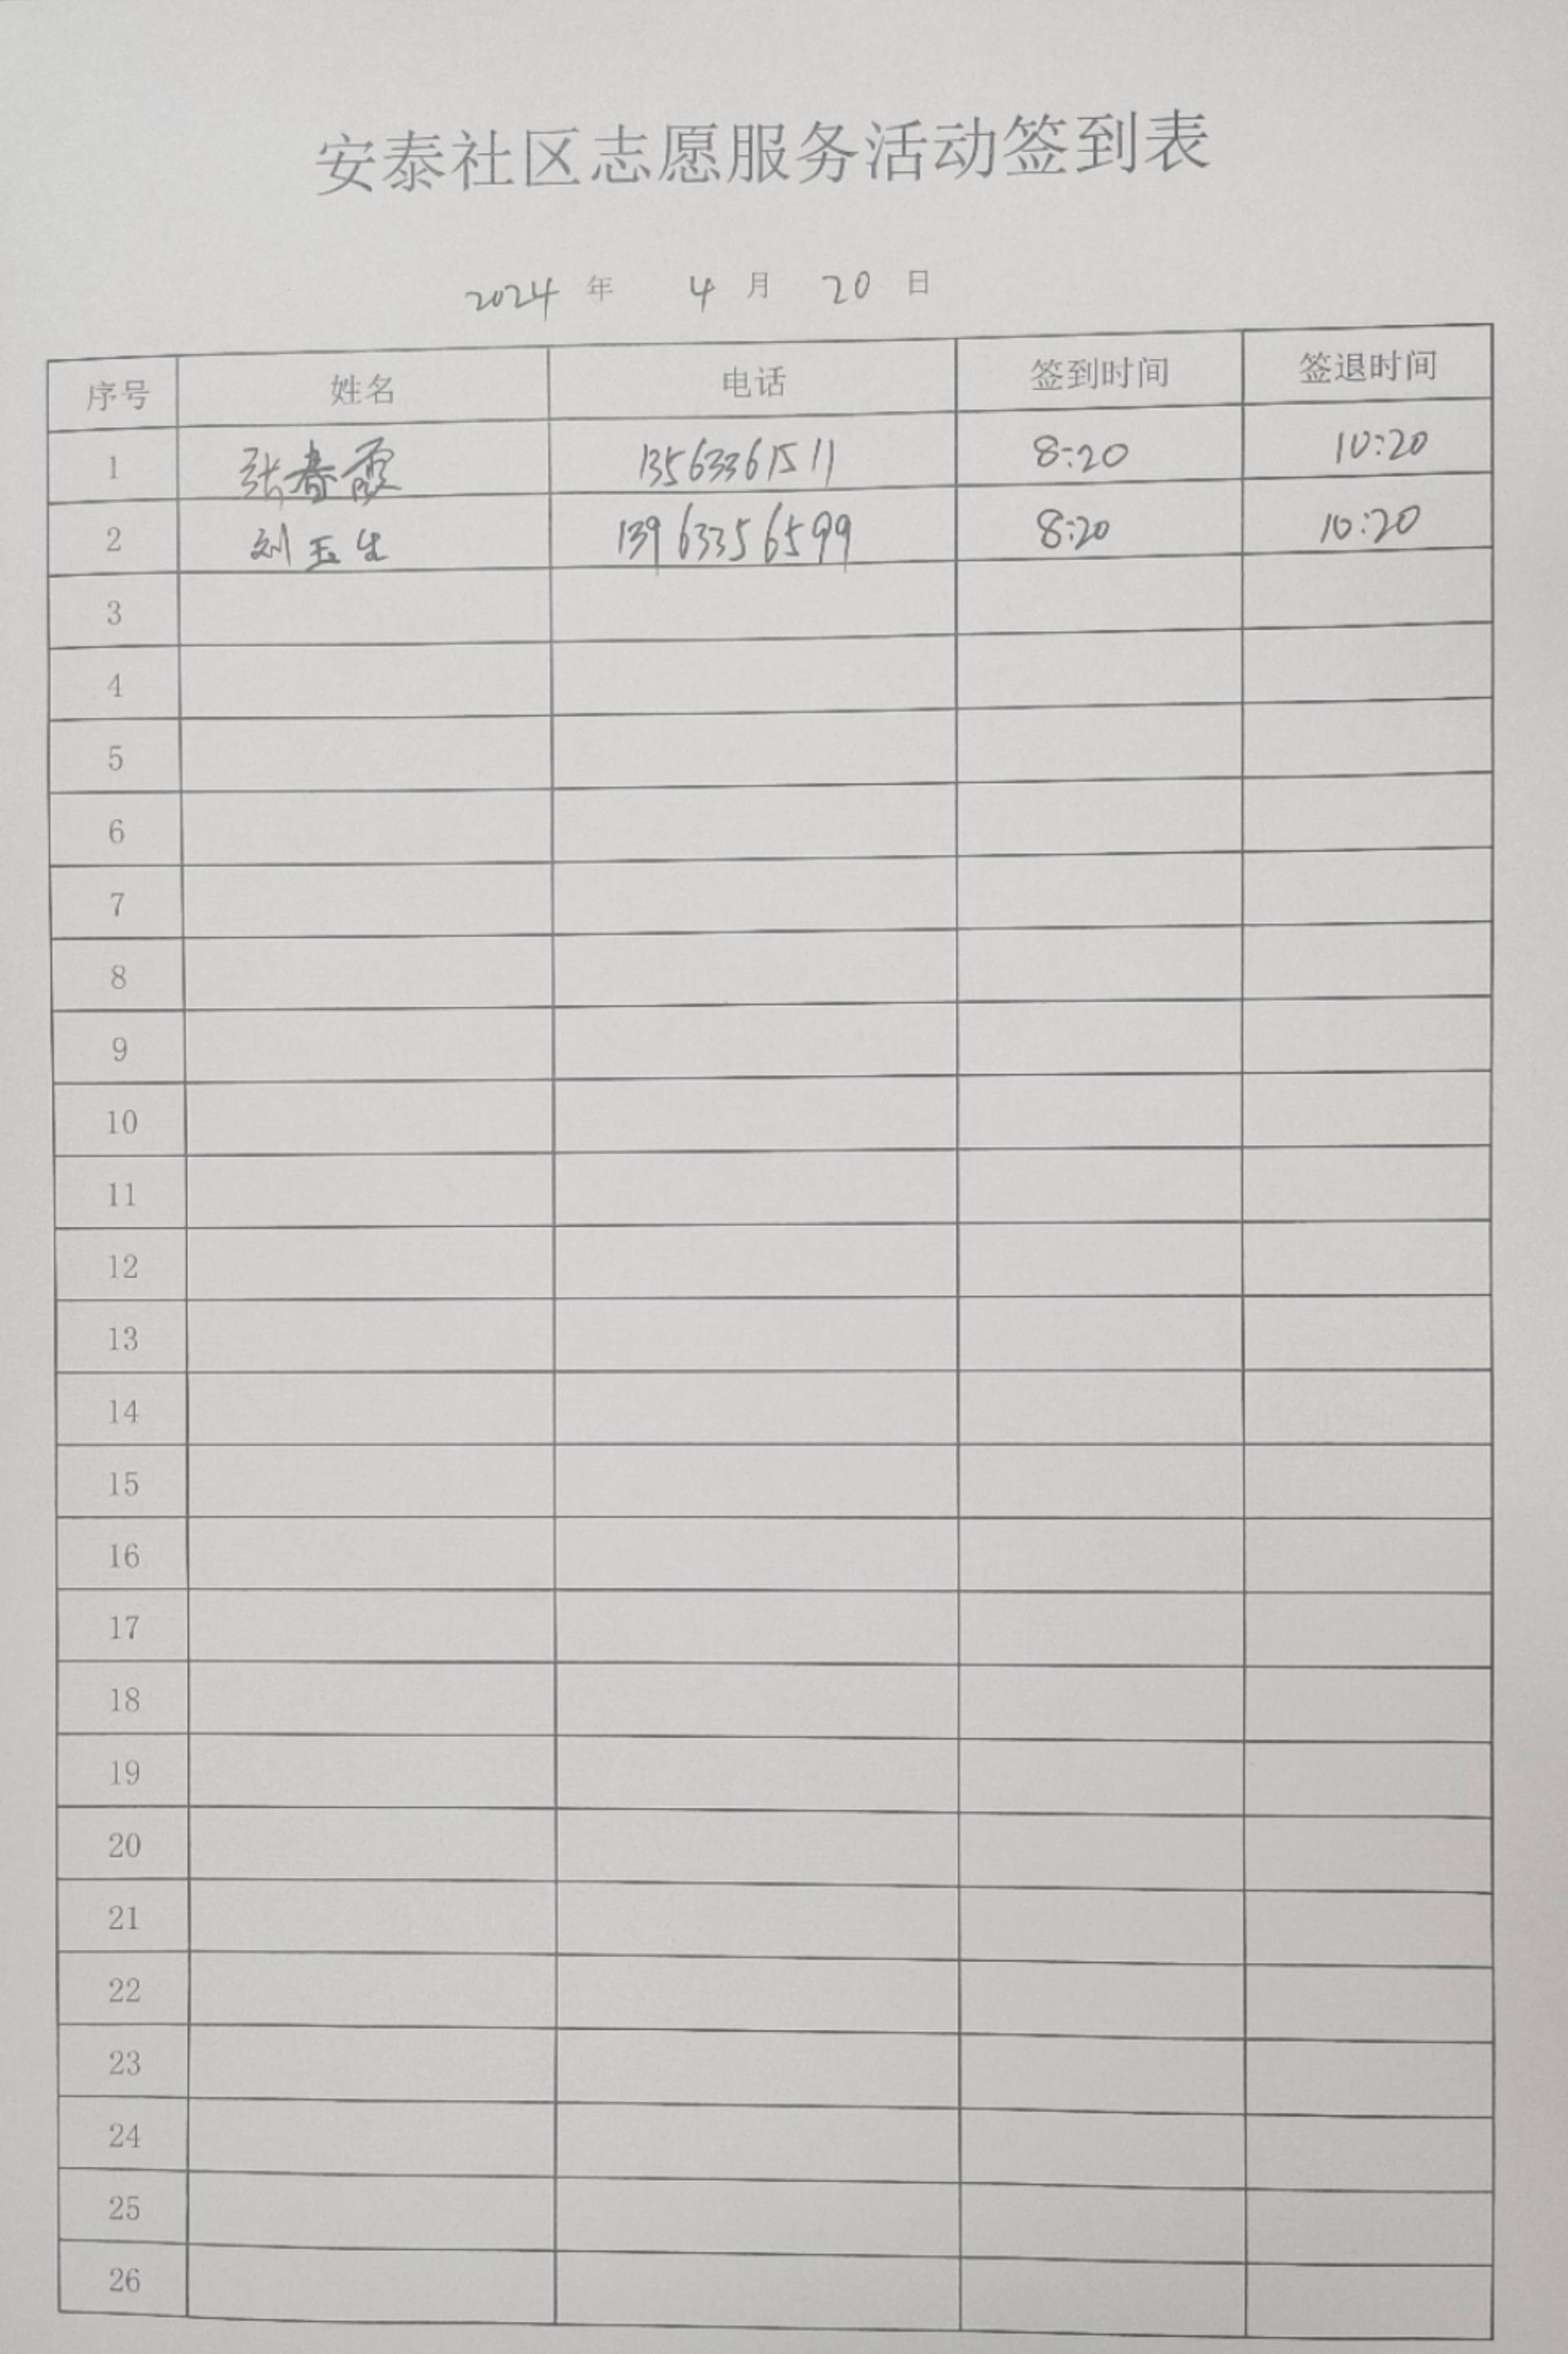 安泰社区志愿服务活动签到表
2024 年 4 月 20 日
序号 姓名 电话 签到时间 签退时间
1 张春霞 13563361511 8:20 10:20
2 刘玉生 13963356599 8:20 10:20
3
4
5
6
7
8
9
10
11
12
13
14
15
16
17
18
19
20
21
22
23
24
25
26